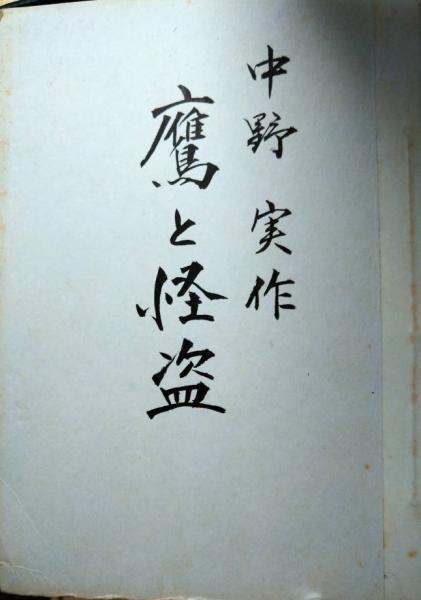 中野 実作
鷹と怪盗